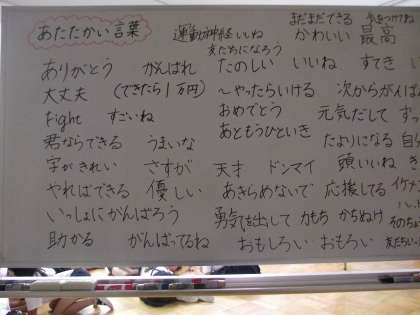 あたたかい言葉
運動神経いいね
友だちになろう
まだまだできる
かわいい 最高
ありがとう がんばれ
たのしい いいね すてき
大丈夫 (できたら1万円)
〜やったらいける 次からがんば
Fight すごいね
おめでとう 元気だして
君ならできる うまいな
あともうひといき たよりになる
字がきれい さすが
天才 ドンマイ 頭いいね
やればできる 優しい
あきらめないで 応援してる イケメン
いっしょにがんばろう
勇気を出して 力もち かちぬけ
助かる がんばってるね
おもしろい おもろい